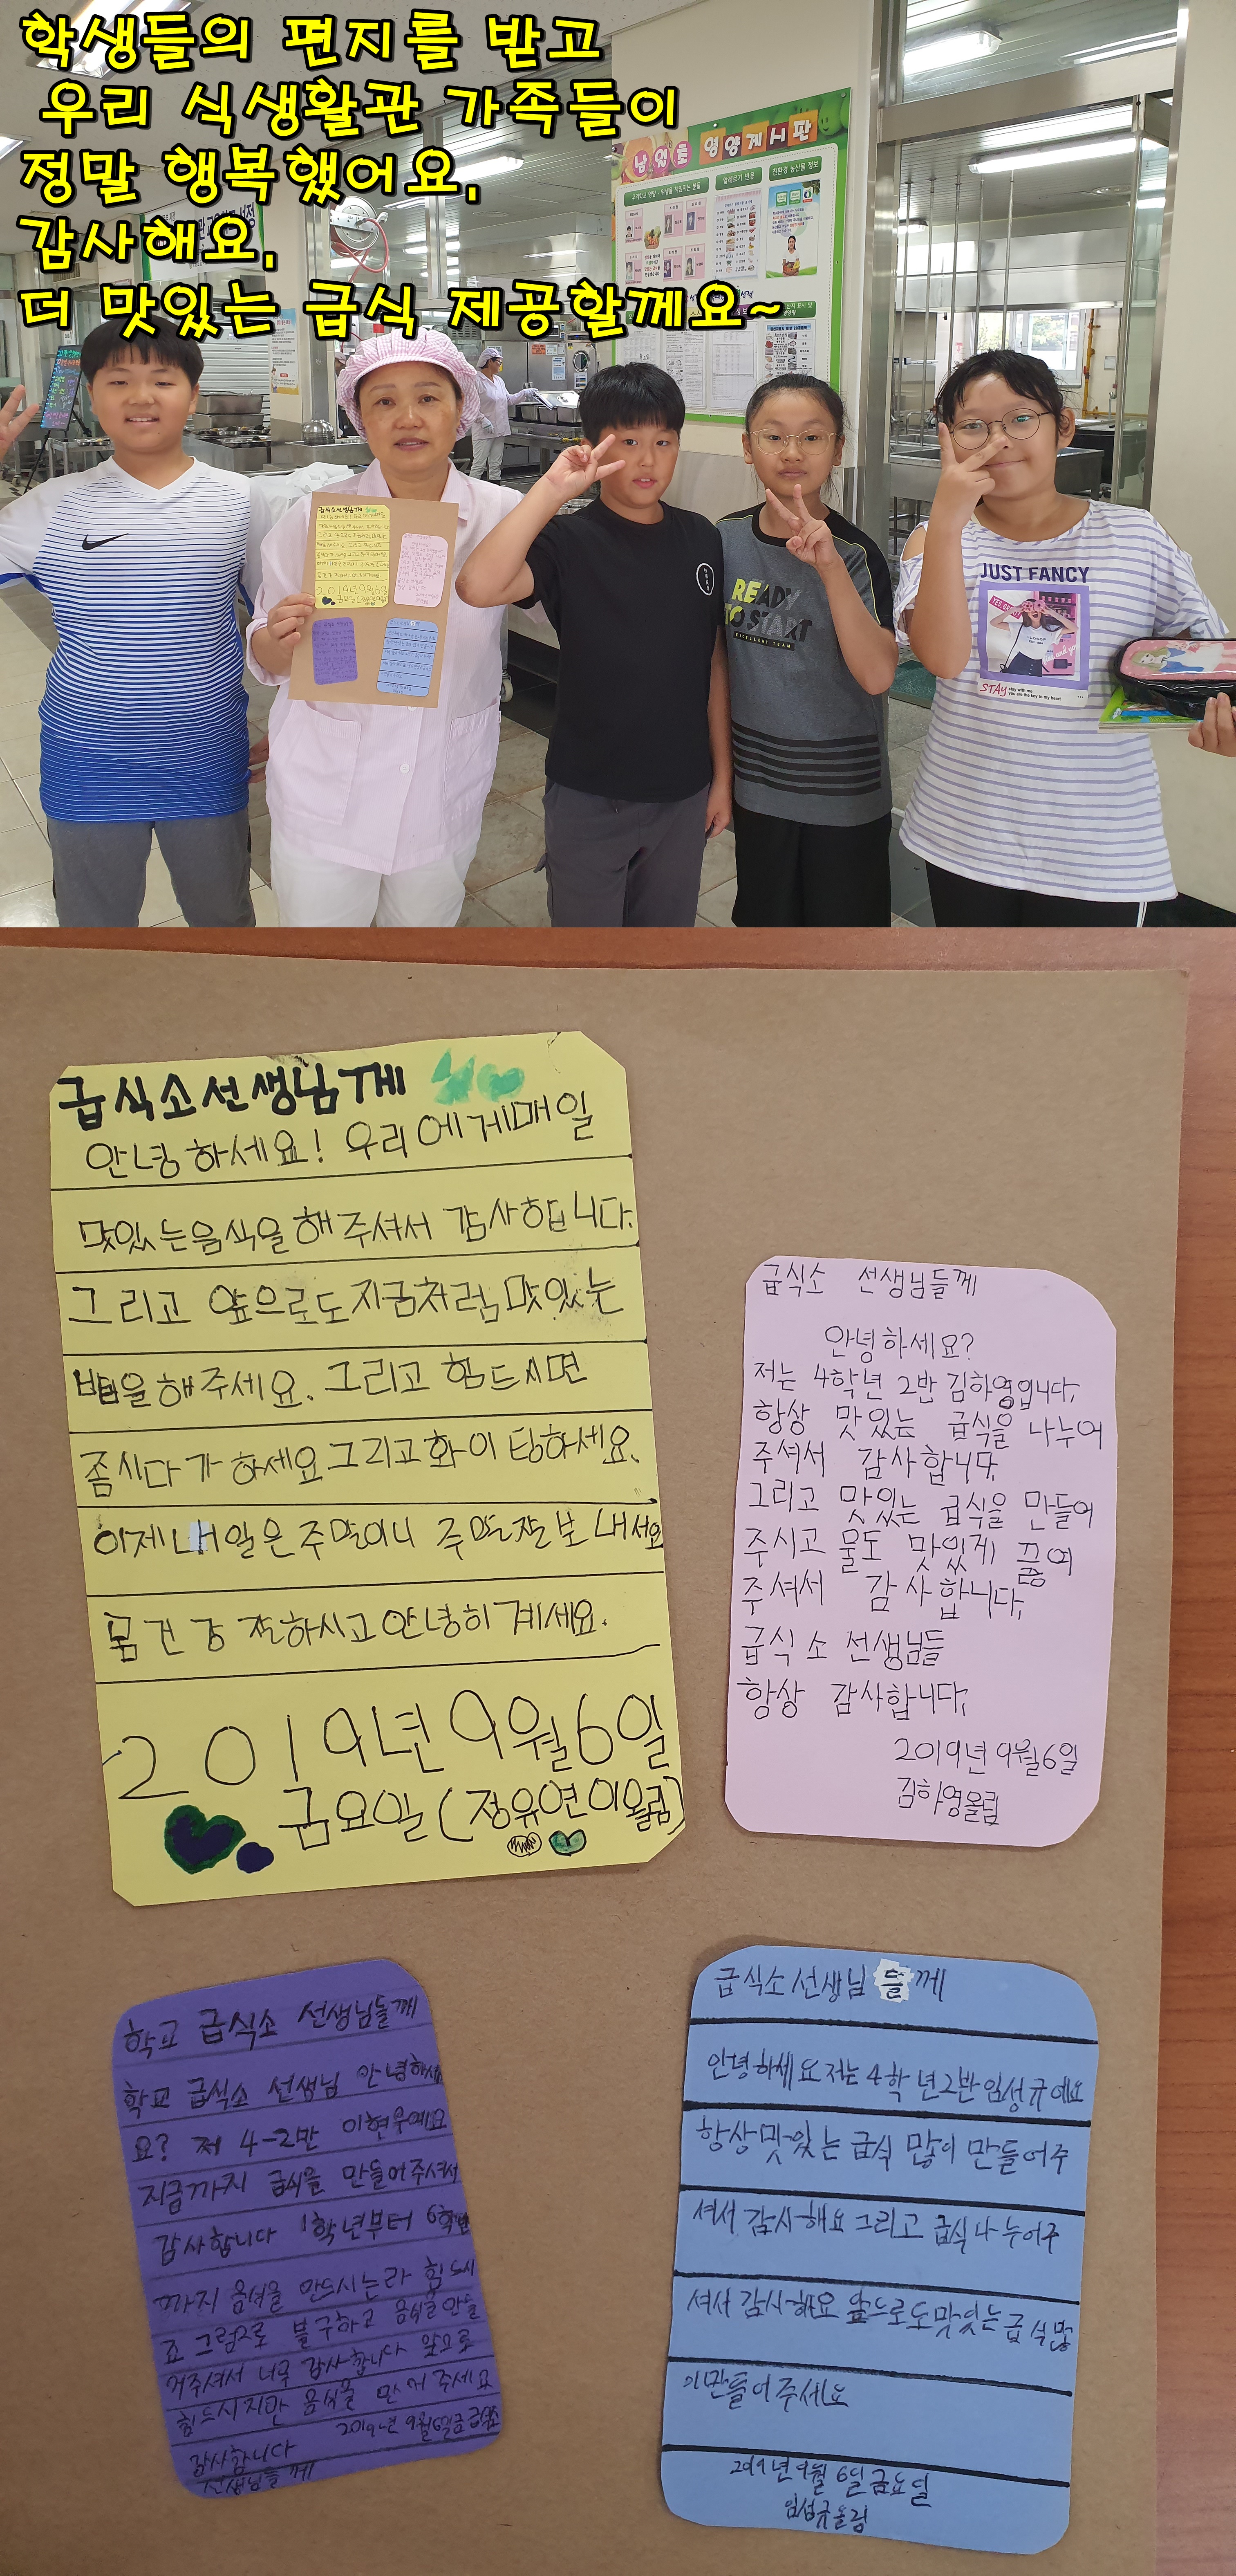 학생들의 편지를 받고
우리 식생활관 가족들이
정말 행복했어요.
감사해요.
더 맛있는 급식 제공할께요~
남원초 영양게시판
알레르기 반응
친환경 농산물 정보
READY
TO START
EXCELLENT TEAM
JUST FANCY
STAY stay with me
you are the key to my heart
급식소선생님께
안녕하세요! 우리에게매일
맛있는음식을해주셔서 감사합니다.
그리고 앞으로도지굼처럼맛있는
밥을해주세요. 그리고 힘드시면
좀시다가하세요그리고화이팅하세요.
이제내일은주말이니 주말잘보내세요
몸건강 잘하시고안녕히계세요.
2019년9월6일
금요일(정유연이올림)
급식소 선생님들께
안녕하세요?
저는 4학년 2반 김하영입니다.
항상 맛있는 급식을 나누어
주셔서 감사합니다.
그리고 맛있는 급식을 만들어
주시고 물도 맛있게 끓여
주셔서 감사합니다.
급식소 선생님들
항상 감사합니다.
2019년 9월6일
김하영올림
학교 급식소 선생님들께
학교 급식소 선생님 안녕하세
요? 저 4-2반 이현우예요
지금까지 급식을 만들어주셔서
감사합니다 1학년부터 6학년
까지 음식을 만드시는라 힘드시
죠 그럼으로 불구하고 음식을만들
어주셔서 너무 감사합니다 앞으로
힘드시지만 음식을 만 어주세요
2019년 9월6일금
감사합니다
선생님들께
급식소선생님들께
안녕하세요저는4학년2반임성규예요
항상맛있는급식 많이 만들어주
셔서 감사해요그리고 급식나누어주
셔서 감사해요 앞으로도맛있는급식많
이만들어주세요
2019년9월 6일금요일
임성규올림